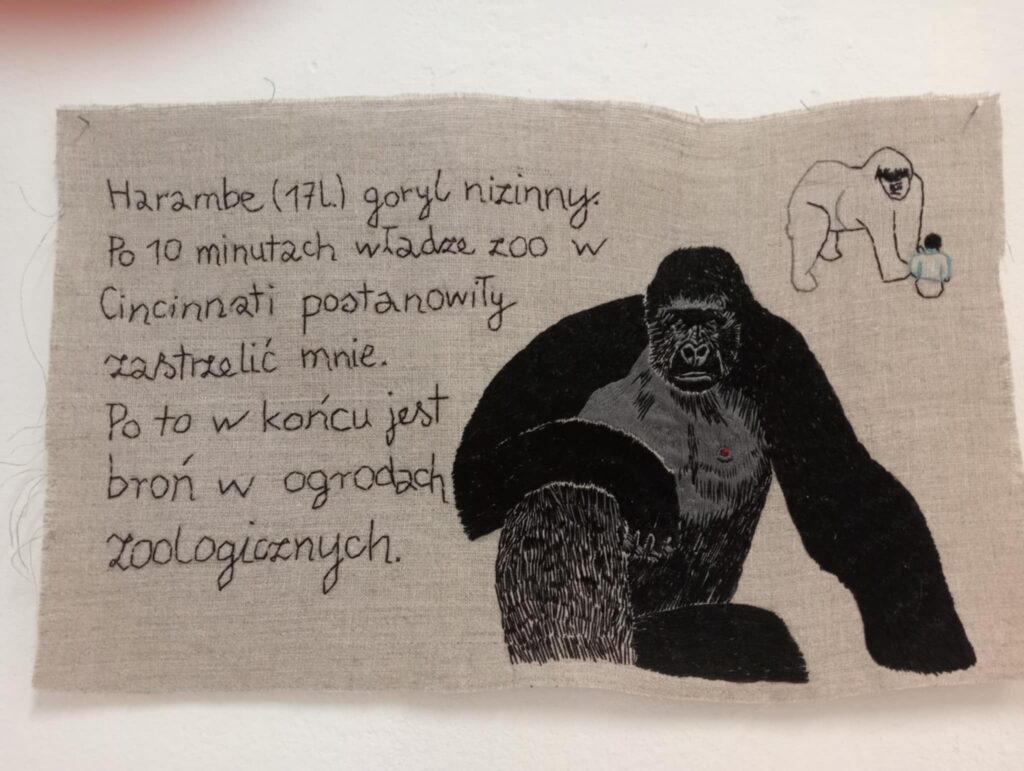 Harambe (17l.) goryl nizinny.
Po 10 minutach władze zoo w
Cincinnati postanowiły
zastrzelić mnie.
Po to w końcu jest
broń w ogrodach
zoologicznych.